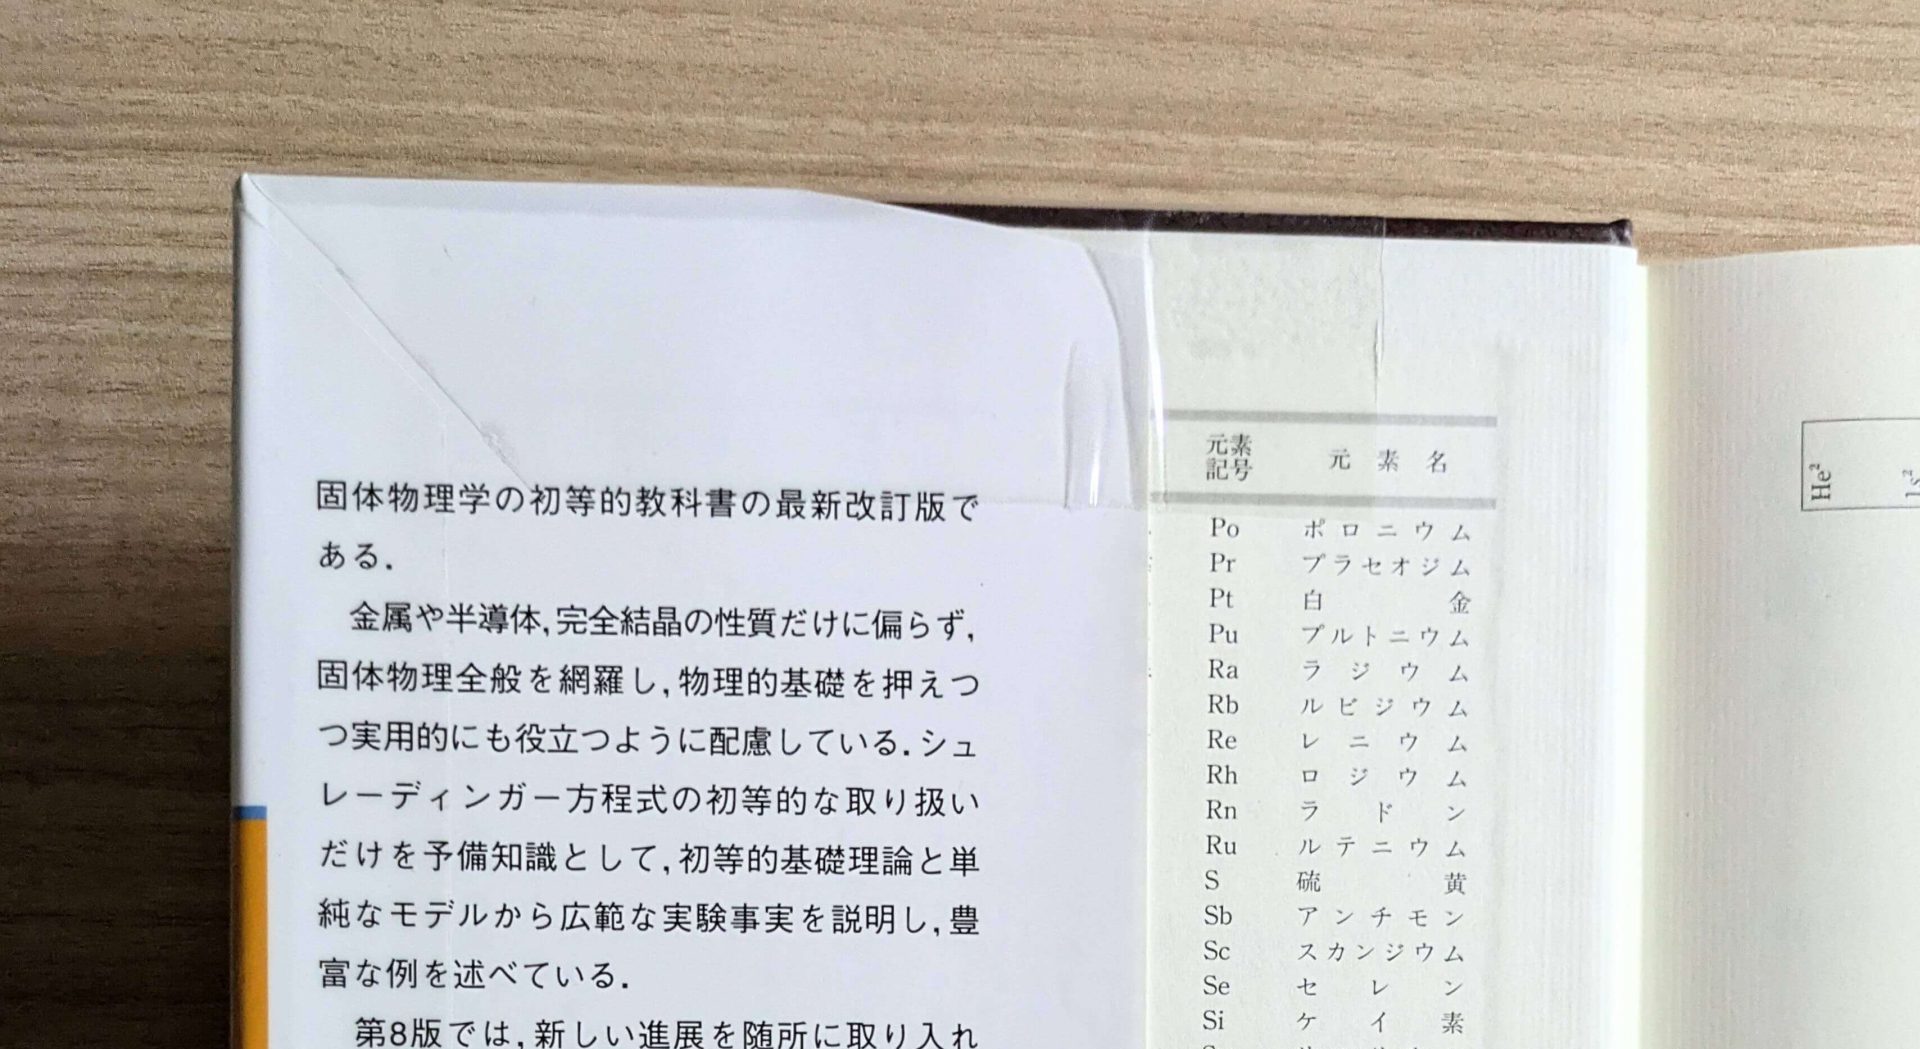 固体物理学の初等的教科書の最新改訂版で
ある.
金属や半導体,完全結晶の性質だけに偏らず,
固体物理全般を網羅し,物理的基礎を押えつ
つ実用的にも役立つように配慮している.シュ
レーディンガー方程式の初等的な取り扱い
だけを予備知識として,初等的基礎理論と単
純なモデルから広範な実験事実を説明し,豊
富な例を述べている.
第8版では,新しい進展を随所に取り入れ
元素記号 元素名
Po ポロニウム
Pr プラセオジム
Pt 白金
Pu プルトニウム
Ra ラジウム
Rb ルビジウム
Re レニウム
Rh ロジウム
Rn ラドン
Ru ルテニウム
S 硫黄
Sb アンチモン
Sc スカンジウム
Se セレン
Si ケイ素
He²
1s²